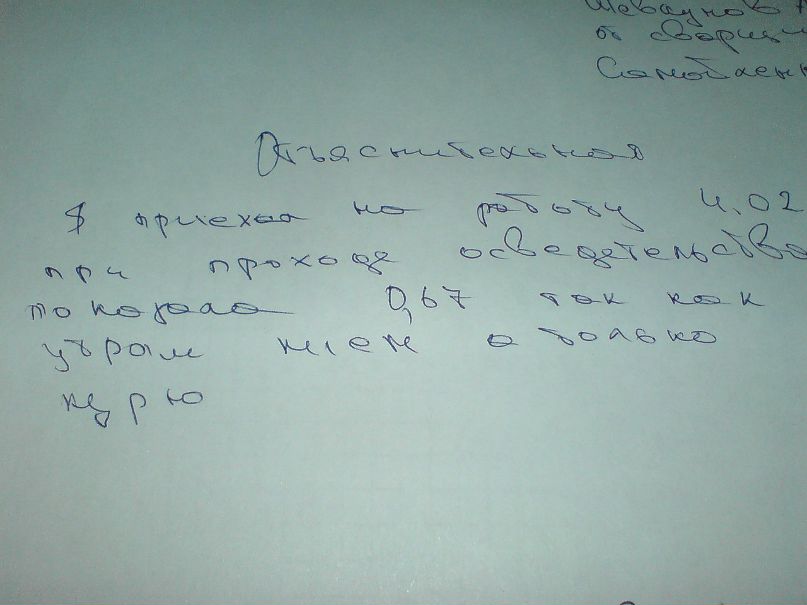 Шевцунов
от сварщи
Самоблаен
Объяснительная
Я приехал на работу 4.02
при проходе осведетельство
показало 0,67 так как
утром не
а только
курю